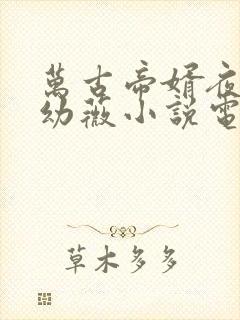 萬古帝婿夜
幼薇小說電
草木多多